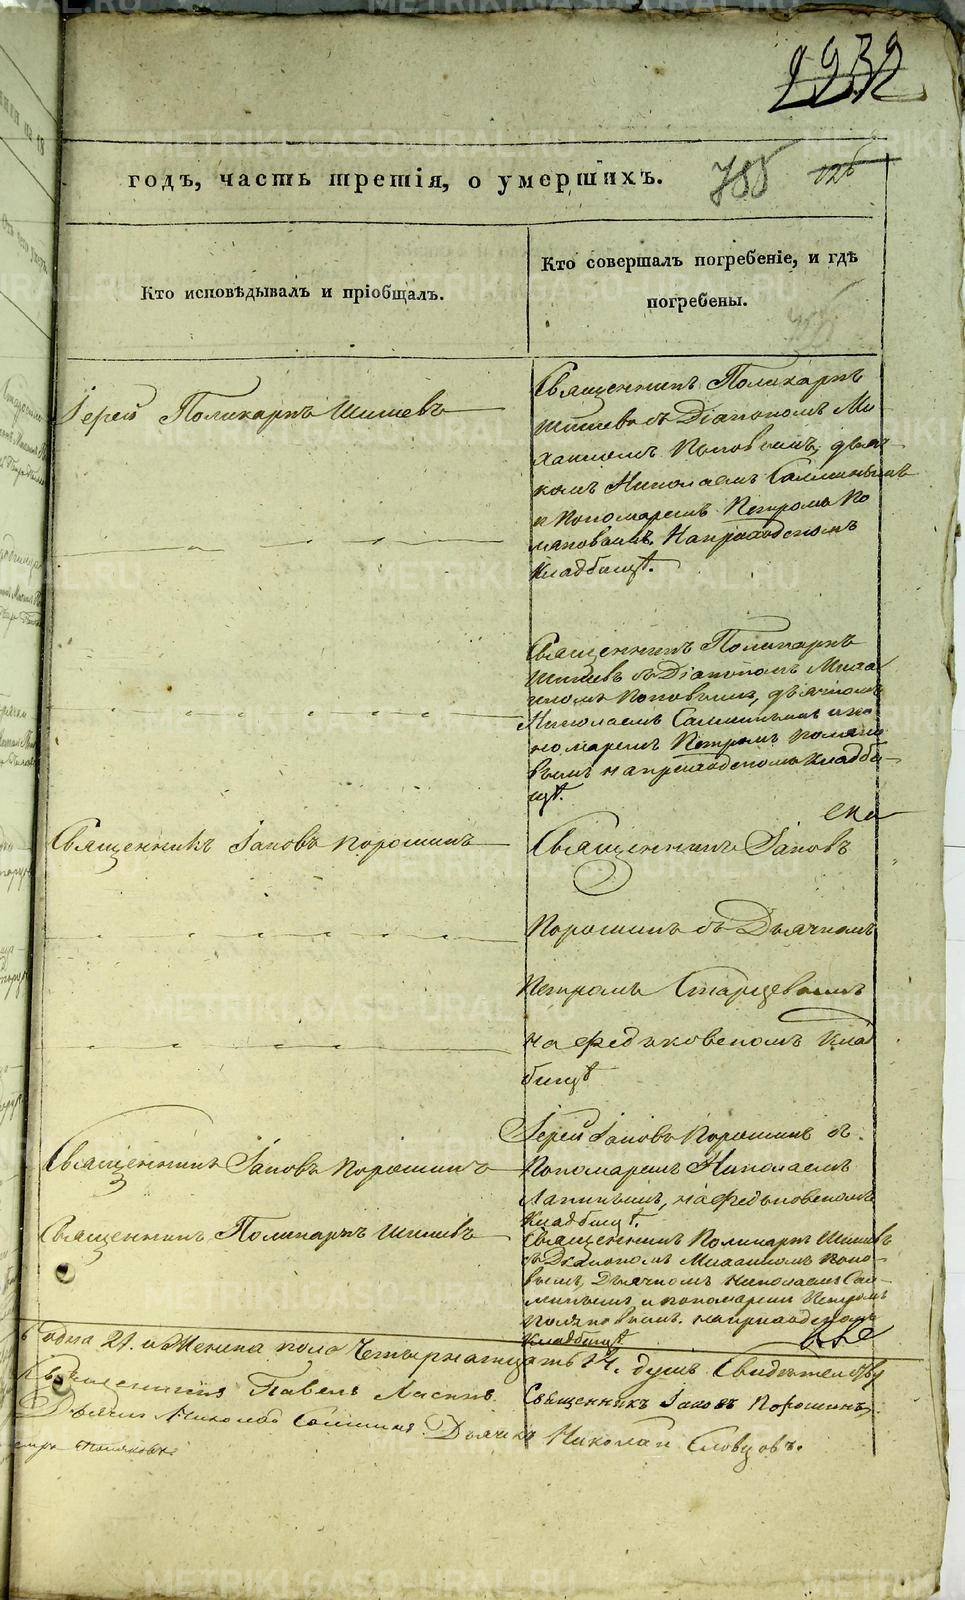 годъ, часть третія, о умершихъ.
Кто исповѣдывалъ и пріобщалъ.
Кто совершалъ погребеніе, и гдѣ
погребены.
Іерей Поликарпъ Шишевъ
Священникъ Поликарпъ
Шишевъ съ Діакономъ Ми-
хаиломъ Поповымъ, дьяч-
комъ Николаемъ
и Пономаремъ Петромъ По
ляковымъ. На приходскомъ
Кладбищѣ.
Священникъ Поликарпъ
Шишевъ съ Діакономъ Миха
иломъ Поповымъ, дьячкомъ
Николаемъ и по
номаремъ Петромъ Поляко
вымъ на приходскомъ кладби-
щѣ.
Священникъ Іаковъ Порошинъ
Священникъ Іаковъ
Порошинъ съ Дьячкомъ
Петромъ Старцевымъ
на Федьковскомъ Клад
бищѣ
Священникъ Іаковъ Порошинъ
Іерей Іаковъ Порошинъ съ
Пономаремъ Николаемъ
Лапинымъ, на Федьковскомъ
Кладбищѣ.
Священникъ Поликарпъ Шишевъ
Священникъ Поликарпъ Шишевъ
съ Діакономъ Михаиломъ Попо-
вымъ, Дьячкомъ Николаемъ
и пономаремъ Петромъ
Поляковымъ. на приходскомъ
Кладбищѣ
одна 21. и Женска пола Четырнатцать 14. душъ.
Павелъ
Священникъ Іаковъ Порошинъ.
Дьячекъ Николай Словцовъ.